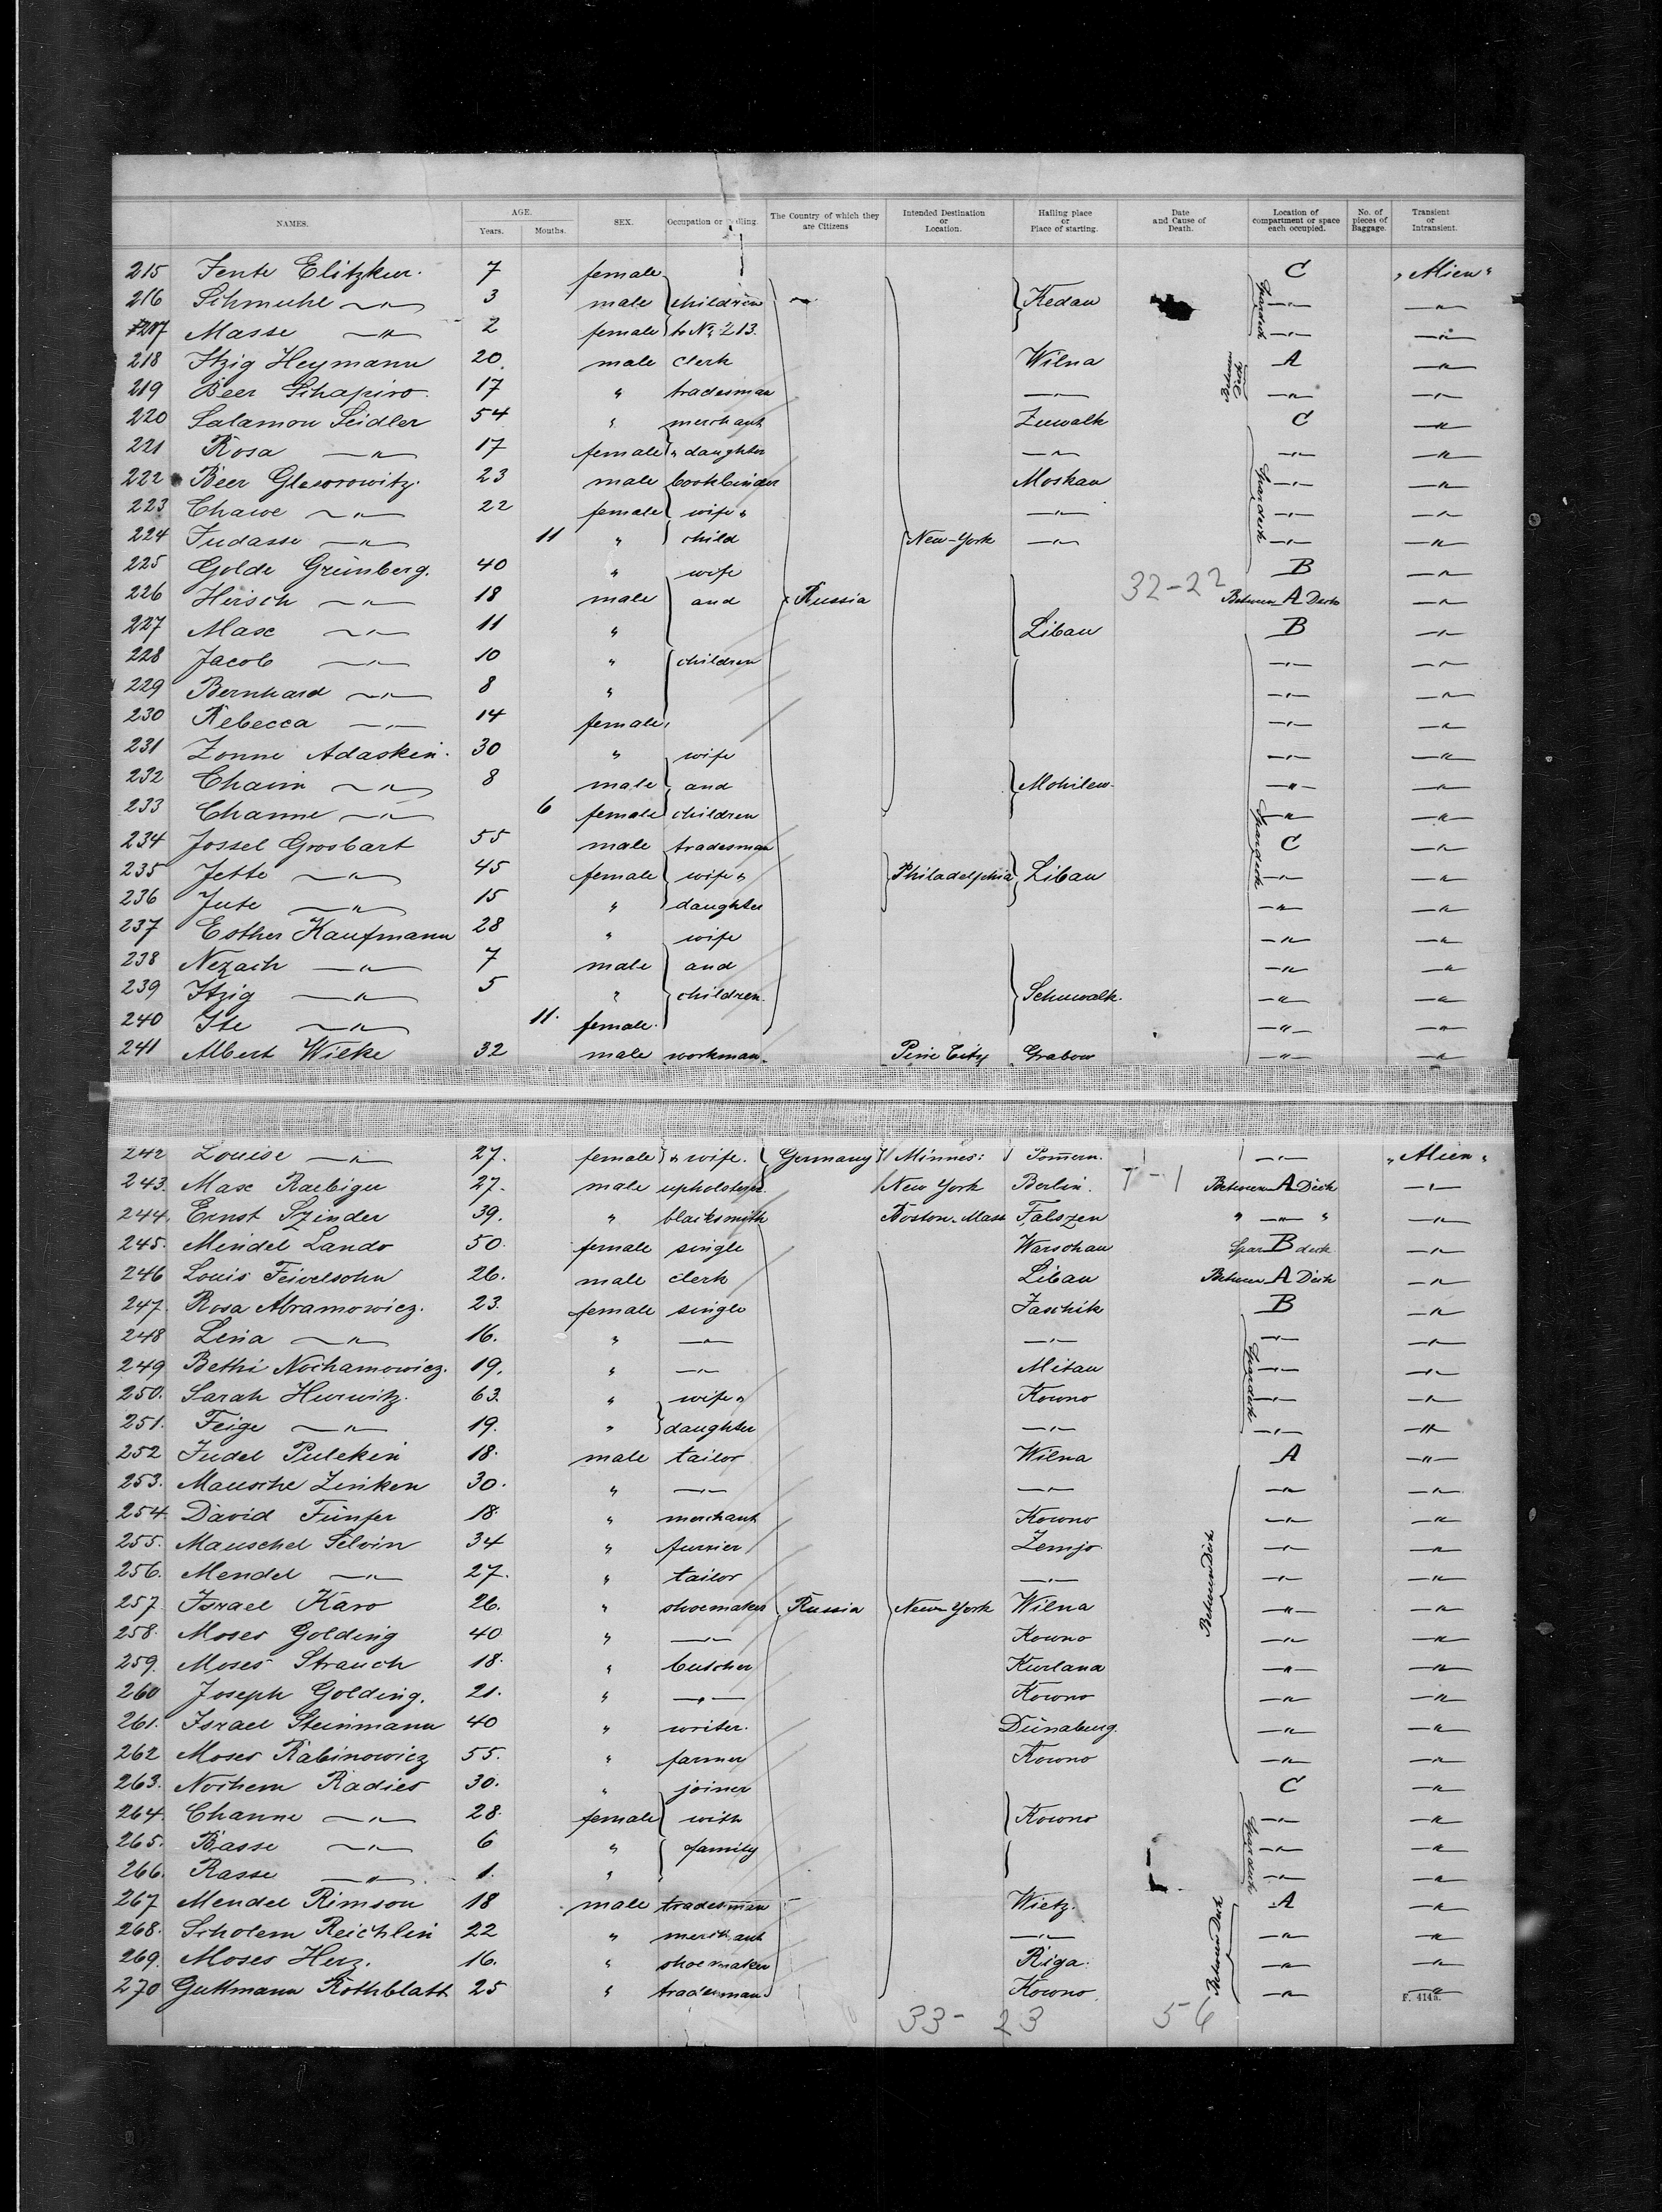 NAMES. AGE. Years. Months. SEX. Occupation or Calling. The Country of which they are Citizens Intended Destination or Location. Hailing place or Place of starting. Date and Cause of Death. Location of compartment or space each occupied. No. of pieces of Baggage. Transient or Intransient.
215 Jente Elitzkur. 7 female C "Alien"
216 Schmuhl —"— 3 male children —"— Kedan —"— —"—
217 Masse —"— 2 female to No. 213. —"— —"—
218 Itzig Heymann 20. male clerk Wilna A —"—
219 Beer Schapiro. 17 " tradesman —"— —"— —"—
220 Salamon Seidler 54 " merchant Zuwalk C —"—
221 Rosa —"— 17 female " daughter —"— —"— —"—
222 Beer 23 male bookbinder Moskau —"— —"—
223 Chawe —"— 22 female wife " —"— —"— —"—
224 Judasse —"— 11 " child New-York —"— —"— —"—
225 Golde Grünberg. 40 " wife B —"—
226 Hirsch —"— 18 male and Russia 32-22 Between A Deck —"—
227 Max —"— 11 " Libau B —"—
228 Jacob —"— 10 " children —"— —"—
229 Bernhard —"— 8 " —"— —"—
230 Rebecca —"— 14 female —"— —"—
231 Zonne Adaskin. 30 " wife —"— —"—
232 Chaim —"— 8 male and Mohilew —"— —"—
233 Channe —"— 6 female children —"— —"—
234 Jossel Grosbart 55 male tradesman C —"—
235 Jette —"— 45 female wife " Philadelphia Libau —"— —"—
236 Jute —"— 15 " daughter —"— —"—
237 Esther Kaufmann 28 " wife —"— —"—
238 Nezach —"— 7 male and —"— —"—
239 Itzig —"— 5 " children. Schuwalk. —"— —"—
240 Ite —"— 11. female. —"— —"—
241 Albert Wilke 32 male workman. Pine City Grabow —"— —"—
242 Louise —"— 27. female " wife. Germany Minnes: Pomern. —"— "Alien"
243. Max Raebiger 27. male upholsterer New York Berlin. 7-1 Between A Deck —"—
244. Ernst Szinder 39. " blacksmith Boston. Mass Falszen " —"— " —"—
245. Mindel Lando 50. female single Warschau Spar B deck —"—
246 Louis Feivelsohn 26. male clerk Libau Between A Deck —"—
247. Rosa Abramowicz. 23. female single Jaschik B —"—
248 Lena —"— 16. " —"— —"— —"— —"—
249 Bethi Nochamowicz. 19. " —"— Mitau —"— —"—
250. Sarah Hurwitz. 63. " wife " Kowno —"— —"—
251. Feige —"— 19. " daughter —"— —"— —"—
252 Judel Pulekin 18. male tailor Wilna A —"—
253. Mausche Zinken 30. " —"— —"— —"— —"—
254. David Fünfer 18. " merchant Kowno —"— —"—
255. Mauschel Selvin 34 " furrier Zemjo —"— —"—
256. Mendel —"— 27. " tailor —"— —"— —"—
257. Israel Karo 26. " shoemaker Russia New-York Wilna —"— —"—
258. Moses Golding 40 " —"— Kowno —"— —"—
259. Moses Strauch 18. " butcher Kurland —"— —"—
260 Joseph Golding. 21. " —"— Kowno —"— —"—
261. Israel Steinmann 40 " writer. Dünaburg. —"— —"—
262 Moses Rabinowicz 55. " farmer Kowno —"— —"—
263. Nochem Radies 30. " joiner C —"—
264. Channe —"— 28. female with Kowno —"— —"—
265. Basse —"— 6 " family —"— —"—
266. Rasse —"— 1. " —"— —"—
267 Mendel Rimson 18 male tradesman Wietz. A —"—
268. Scholem Reichlin 22 " merchant —"— —"— —"—
269. Moses Herz. 16. " shoemaker Riga. —"— —"—
270 Guttmann Rothblatt 25 " tradesman Kowno. —"— —"—
Spardeck
Between Deck
Spardeck
Spardeck
Spardeck
Between Deck
Spardeck
Between Deck
F. 414a.
33- 23 56